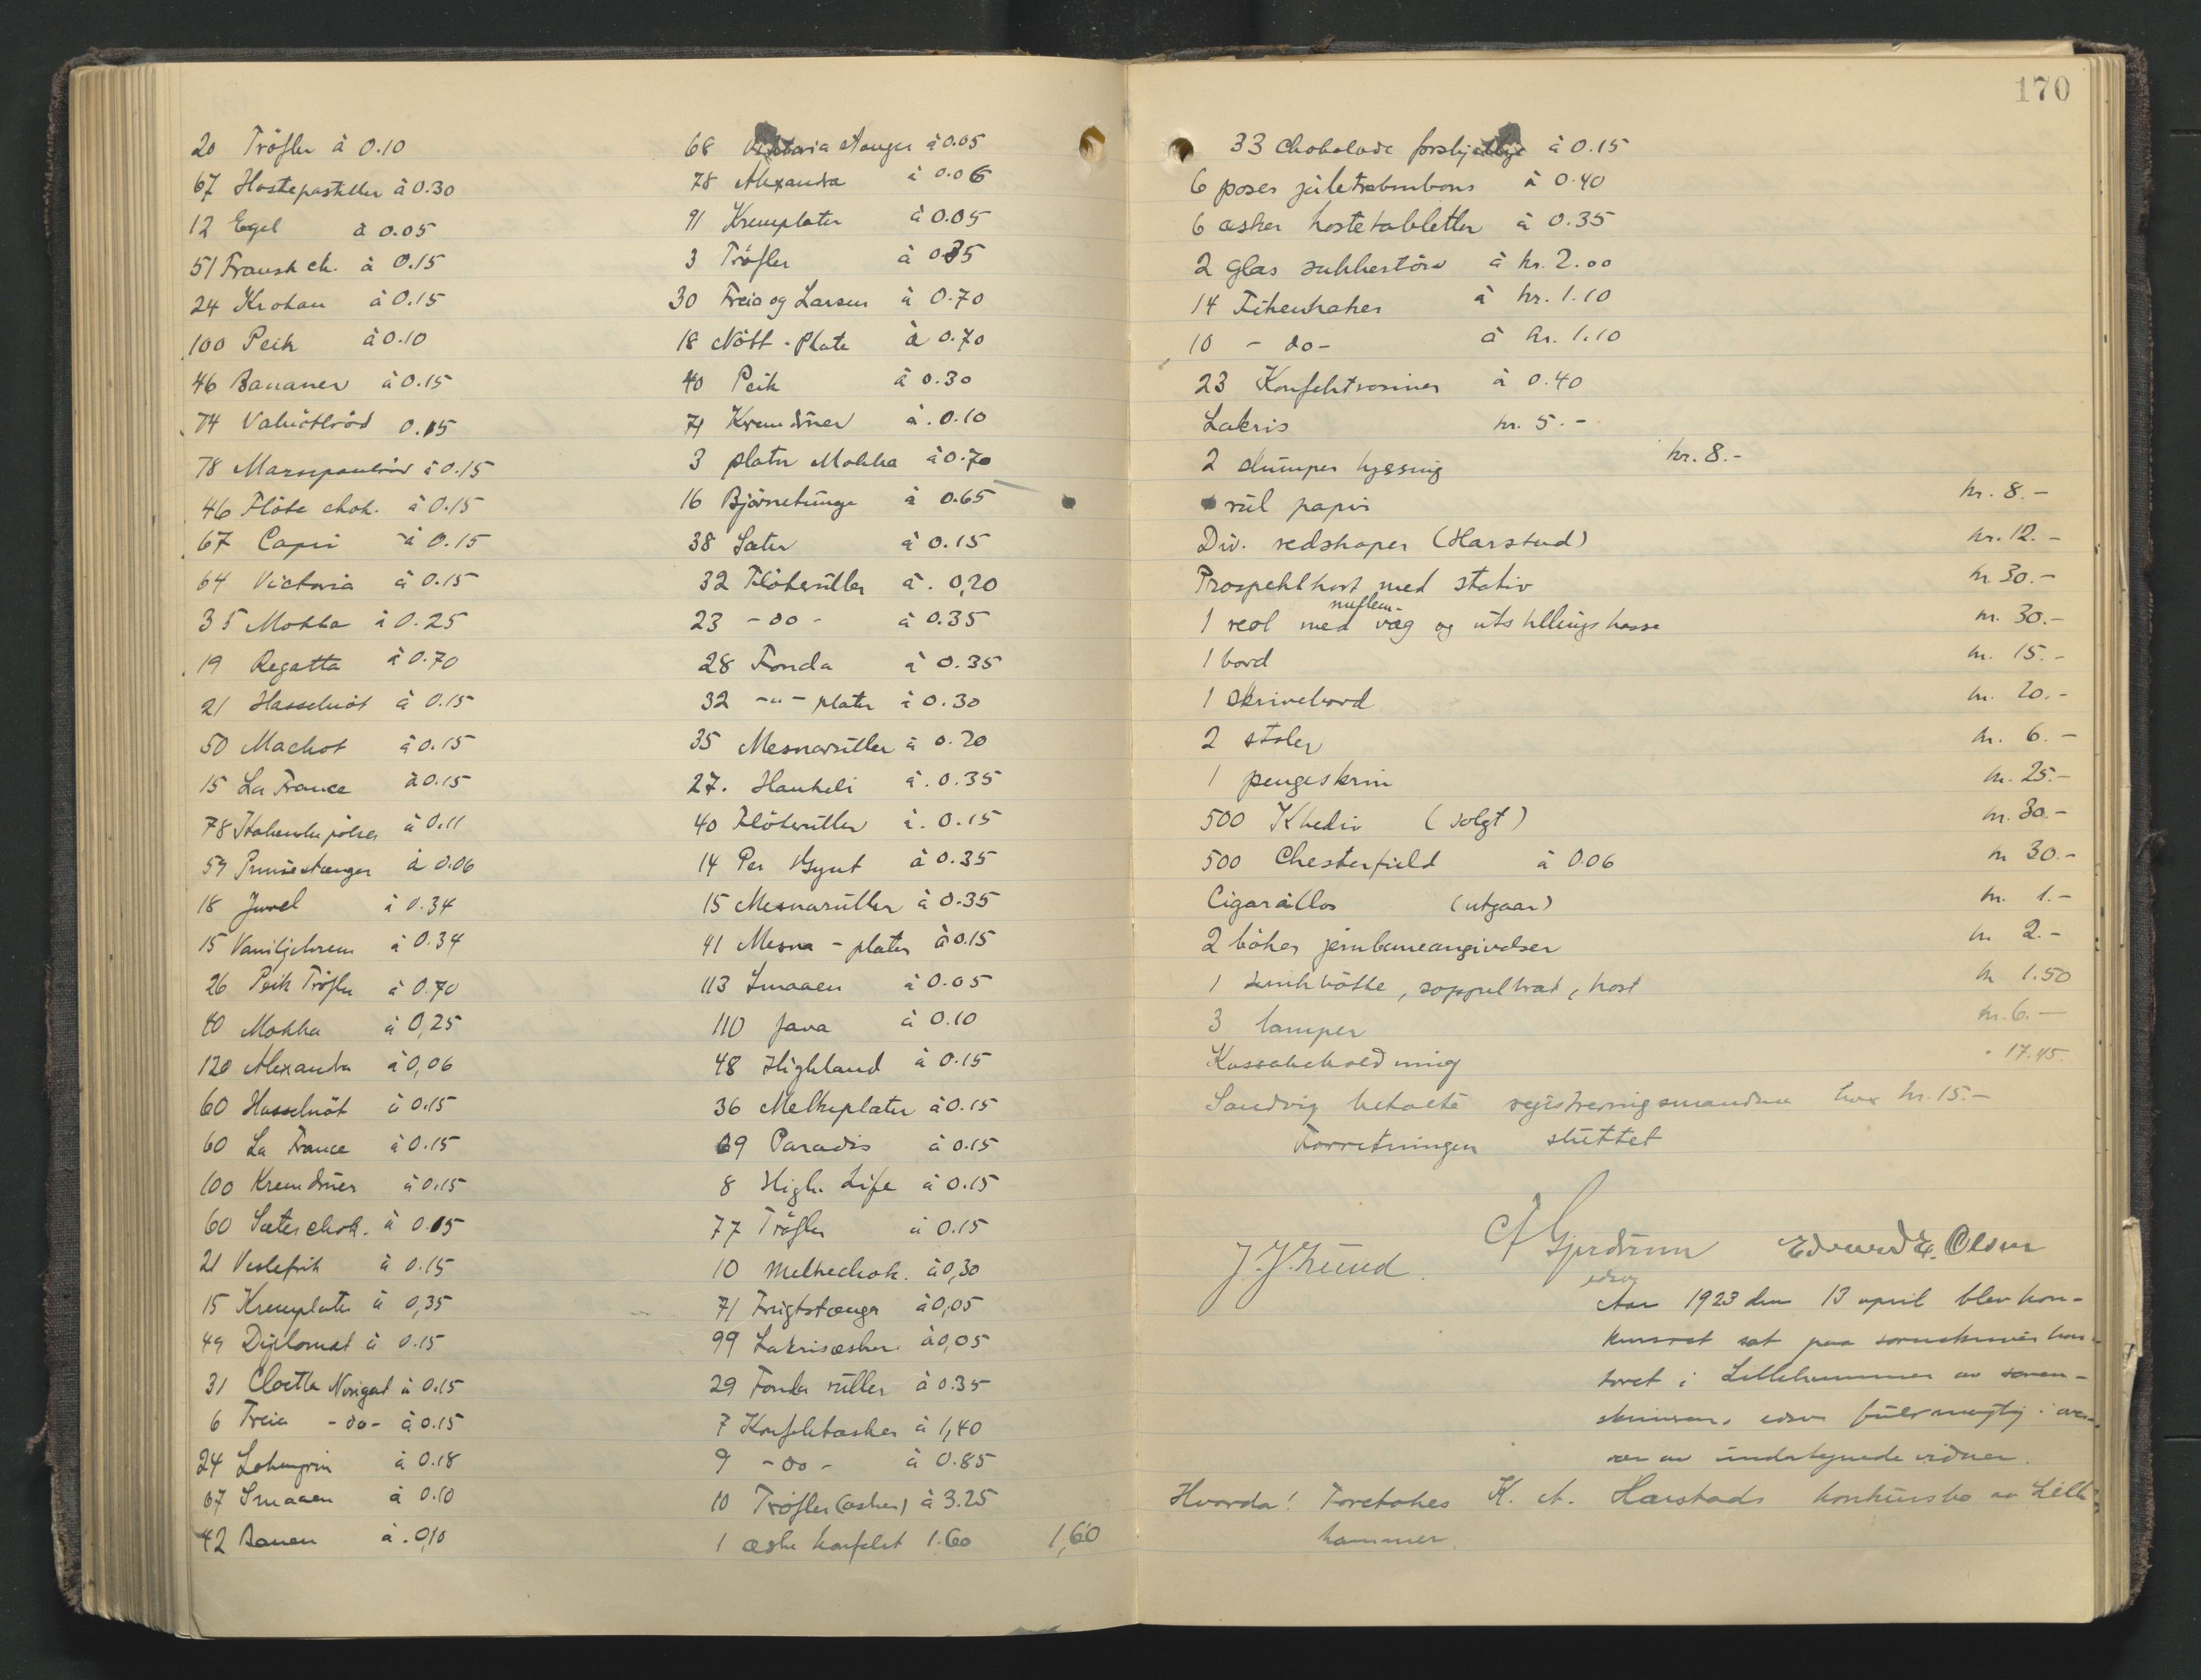 20 Tröfler à 0.10
67 Hostepastiller à 0.30
12 Egel à 0.05
51 Fransk ch. à 0.15
24 Krokan à 0.15
100 Peik à 0.10
46 Bananer à 0.15
74 Valnötbröd 0.15
78 Marsipanbröd à 0.15
46 Flöte chok. à 0.15
67 Capri à 0.15
64 Victoria à 0.15
35 Mokka à 0.25
19 Regatta à 0.70
21 Hasselnöt à 0.15
50 Machot à 0.15
15 La France à 0.15
78 à 0.11
59 à 0.06
18 Juvel à 0.34
15 Vaniljekrem à 0.34
26 Peik Tröfler à 0.70
40 Mokka à 0,25
120 Alexandra à 0,06
60 Hasselnöt à 0.15
60 La France à 0.15
100 Kremdruer à 0.15
60 Sæter chok. à 0.15
21 Veslefrik à 0.15
15 Kremplater à 0,35
49 Diplomat à 0.15
31 Cloetta Nougat à 0.15
6 Freia -do- à 0.15
24 Lohengrin à 0.18
67 Smaaen à 0.10
42 Banan à . 0,10
68 Viktoria stanger à 0.05
78 Alexandra à 0.06
91 Kremplater à 0.05
3 Tröfler à 0.35
30 Freia og Larsen à 0.70
18 Nött-Plate à 0.70
40 Peik à 0.30
71 Kremdruer à . 0.10
3 plater Mokka à 0.70
16 Björnetunge à 0.65
38 Sæter à 0.15
32 Flöteruller à . 0,20
23 -do- à 0.35
28 Fonda à 0.35
32 -"- plater à 0.30
35 Mesnaruller à 0.20
27. Hankeli à . 0.35
40 Flöteruller à . 0.15
14 Per Gynt à 0.35
15 Mesnaruller à 0.35
41 Mesna - plater à 0.15
113 Smaaen à 0.05
110 Java à 0.10
48 Highland à 0.15
36 Melkeplater à 0.15
69 Paradis à 0.15
8 High Life à 0.15
77 Tröfler à 0.15
10 Melkechok. à 0,30
71 Frugtstænger à 0,05
99 Lakrisæsker à 0,05
29 Fonda ruller à 0.35
7 Konfektæsker à 1,40
9 -do- à 0.85
10 Tröfler (æsker) à 3.25
1 æske konfekt 1.60 1,60
170
33 Chokolade forskjellige à 0.15
6 poser juletrebonbons à 0.40
6 æsker hostetabletter à 0.35
2 Glas sukkertöri à kr. 2.00
14 Fikenkaker à kr. 1.10
10 - do- à kr. 1.10
23 Konfektrosiner à 0.40
Lakris kr. 5.-
2 klumper hyssing kr. 8.-
rul papir kr. 8.-
Div. redskaper (Harstad) kr. 12.-
Prospektkort med stativ kr 30.-
1 reol med væg og utstillingskasse kr. 30.-
1 bord kr. 15.-
1 Skrivebord kr. 20.-
2 stoler kr. 6.-
1 pengeskrin kr. 25.-
500 Khediv (solgt) kr. 30.-
500 Chesterfield à 0.06 kr 30.-
Cigarillos (utgaar) kr. 1.-
2 böker jernbaneangivelser kr 2.-
1 sinkbötte, söppelbræt, kost kr 1.50
3 lamper kr. 6.-
Kassabeholdning " 17.45.
Sandvig betalte registreringsmændene hver kr. 15.-
Forretningen sluttet
A Gjerdrum Edvard E. Olsen
edsv
J. J. Lund.
Aar 1923 den 13 april blev kon-
kursret sat paa sorenskriverkon-
toret i Lillehammer av soren-
skriveren, edsv fuldmægtig i over-
vær av undertegnede vidner.
Hvorda! Foretokes K. A. Harstads konkursbo av Lille
hammer.